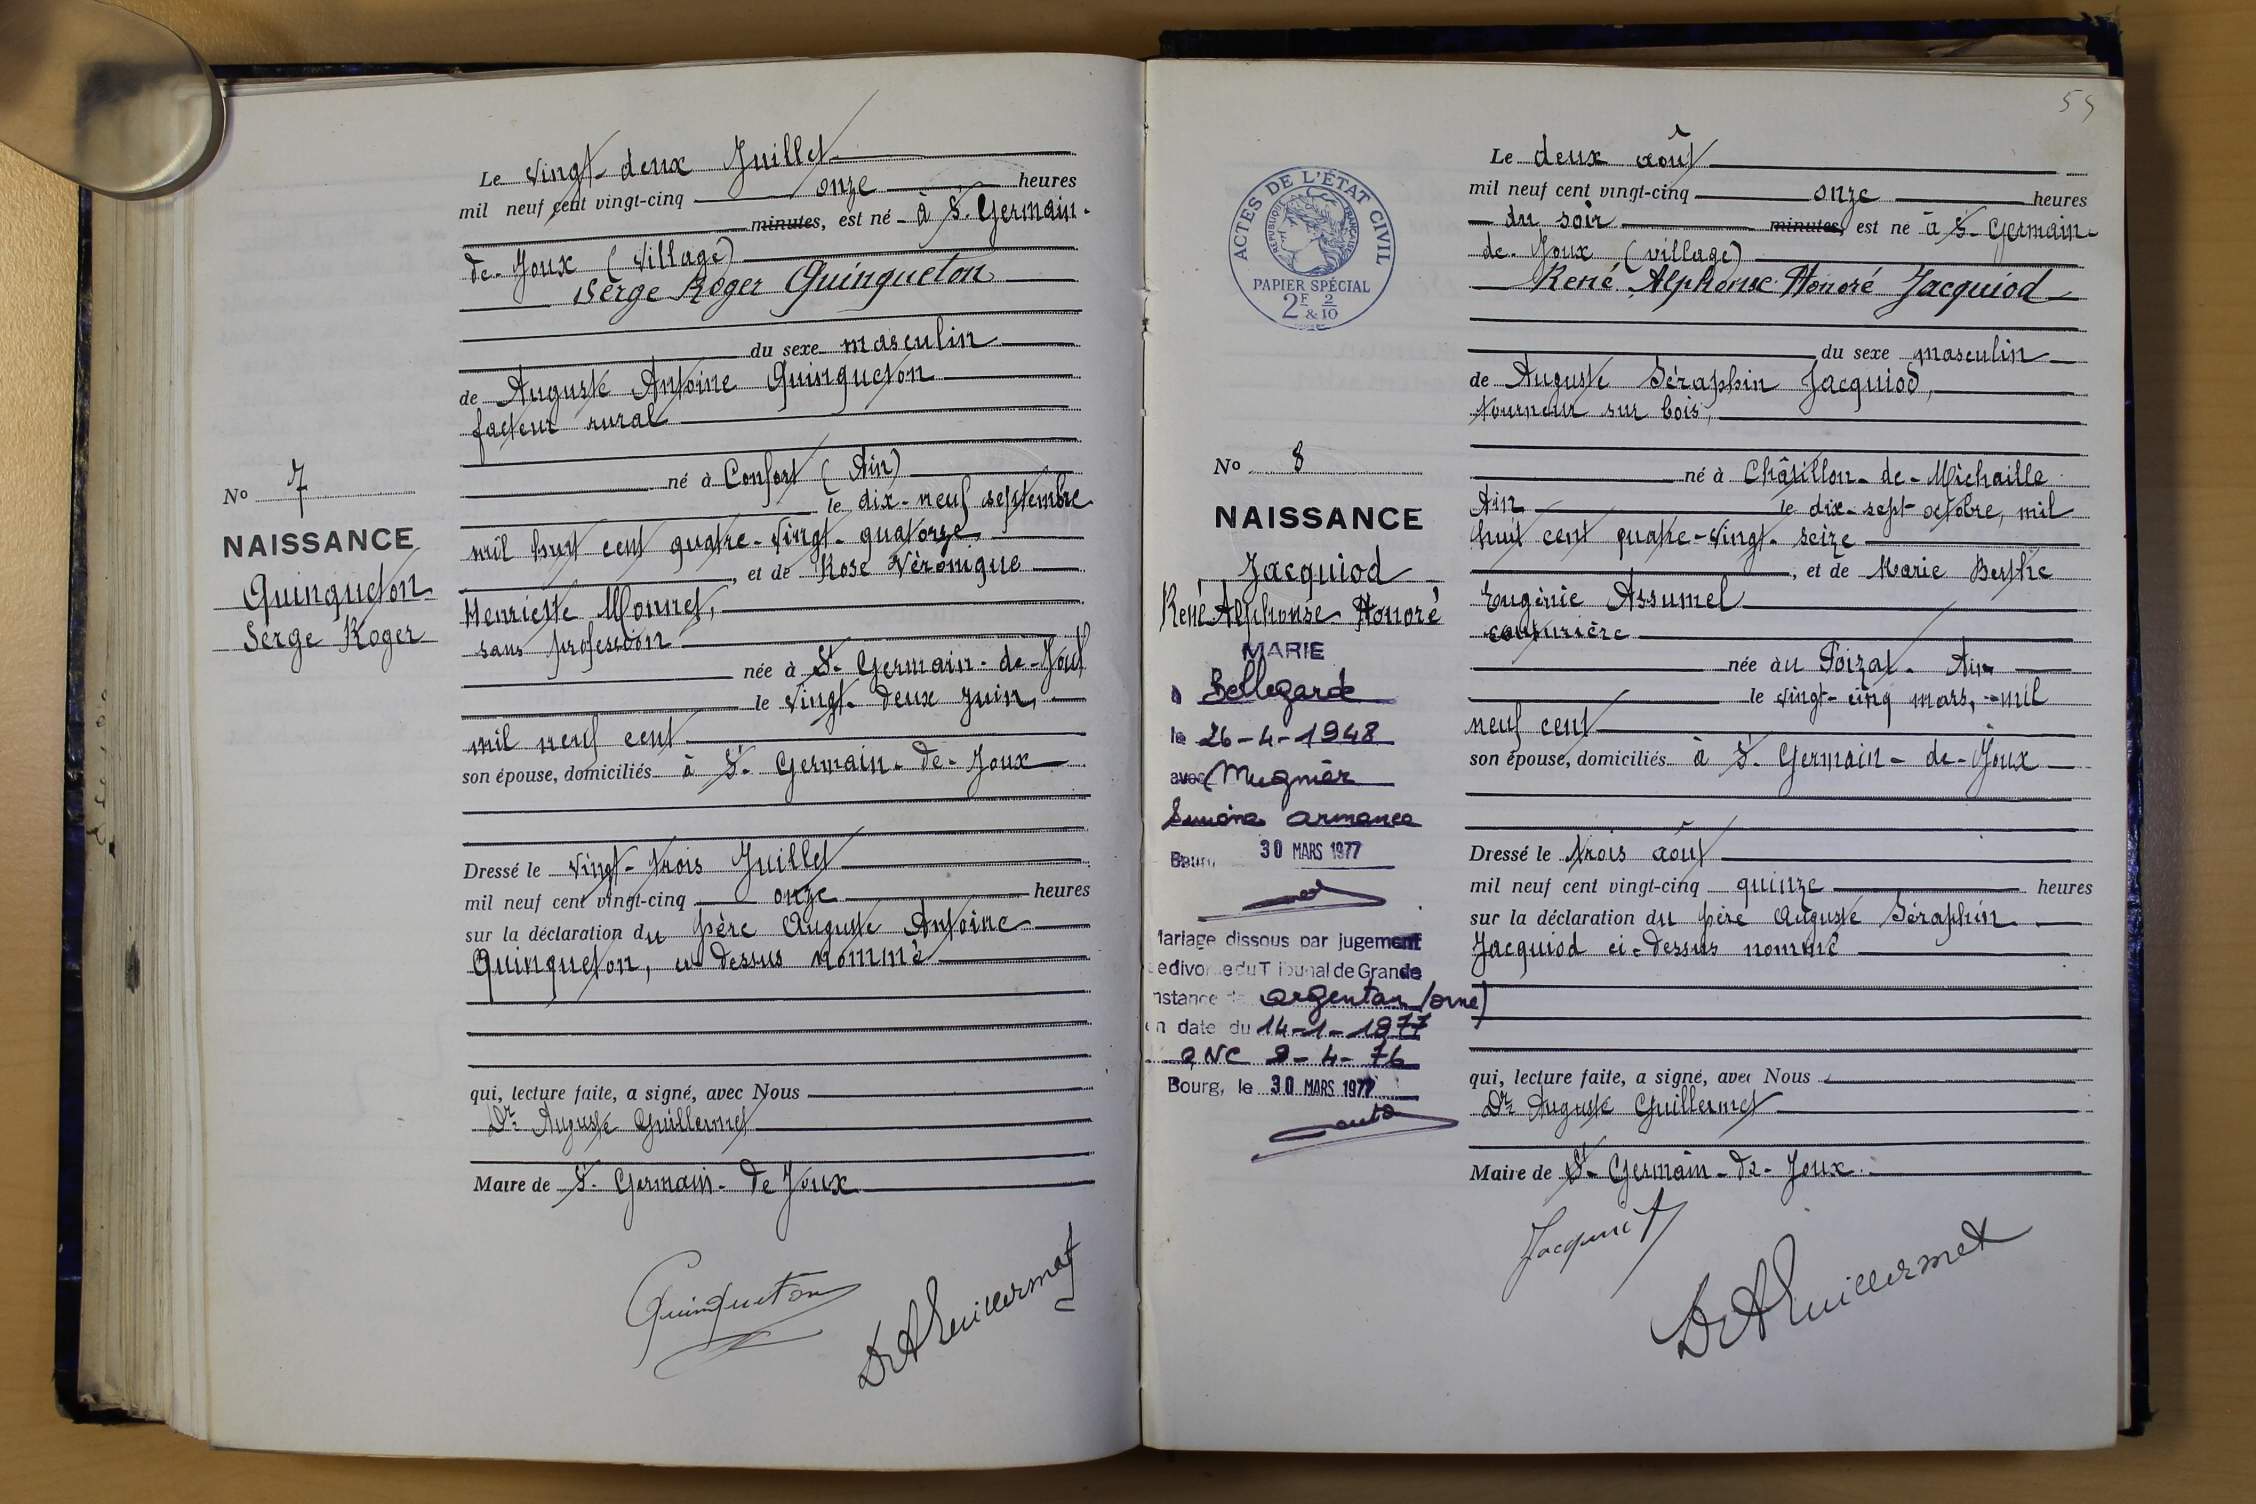 Le vingt-deux Juillet
mil neuf cent vingt-cinq onze heures
minutes, est né à St. Germain-
de-Joux (village)
Serge Roger Quinqueton
du sexe masculin
de Auguste Antoine Quinqueton
facteur rural
né à Confort (Ain)
le dix-neuf septembre
mil huit cent quatre-vingt-quatorze
, et de Rose Véronique
Henriette Monnet,
sans profession
née à St. Germain-de-Joux
le vingt-deux juin,
mil neuf cent
son épouse, domiciliés à St. Germain-de-Joux
Dressé le vingt-trois Juillet
mil neuf cent vingt-cinq onze heures
sur la déclaration du père Auguste Antoine
Quinqueton, ci dessus nommé
qui, lecture faite, a signé, avec Nous
Dr. Auguste Guillermet
Maire de St. Germain-de Joux
Quinqueton
Dr A Guillermet
No 7
NAISSANCE
Quinqueton
Serge Roger
55
ACTES DE L'ÉTAT CIVIL
RÉPUBLIQUE FRANÇAISE
PAPIER SPÉCIAL
2F & 2/10
Le deux août
mil neuf cent vingt-cinq onze heures
du soir minutes, est né à St. Germain-
de-Joux (village)
René Alphonse Honoré Jacquiod
du sexe masculin
de Auguste Séraphin Jacquiod,
tourneur sur bois,
né à Châtillon-de-Michaille
Ain le dix-sept octobre, mil
huit cent quatre-vingt-seize
, et de Marie Berthe
Eugénie Assumel
couturière
née au Poizat. Ain
le vingt-cinq mars, mil
neuf cent
son épouse, domiciliés à St. Germain-de-Joux
Dressé le trois août
mil neuf cent vingt-cinq quinze heures
sur la déclaration du père Auguste Séraphin
Jacquiod ci-dessus nommé
qui, lecture faite, a signé, avec Nous
Dr. Auguste Guillermet
Maire de St. Germain-de-Joux.
Dr A Guillermet
No 8
NAISSANCE
Jacquiod
René Alphonse Honoré
MARIE
à Bellegarde
le 26-4-1948
avec Mugnier
Simone Armance
Bourg 30 MARS 1977
Mariage dissous par jugement
de divorce du Tribunal de Grande
Instance de Argentan (orne)
en date du 14-1-1977
ONC 8-4-76
Bourg, le 30 MARS 1977